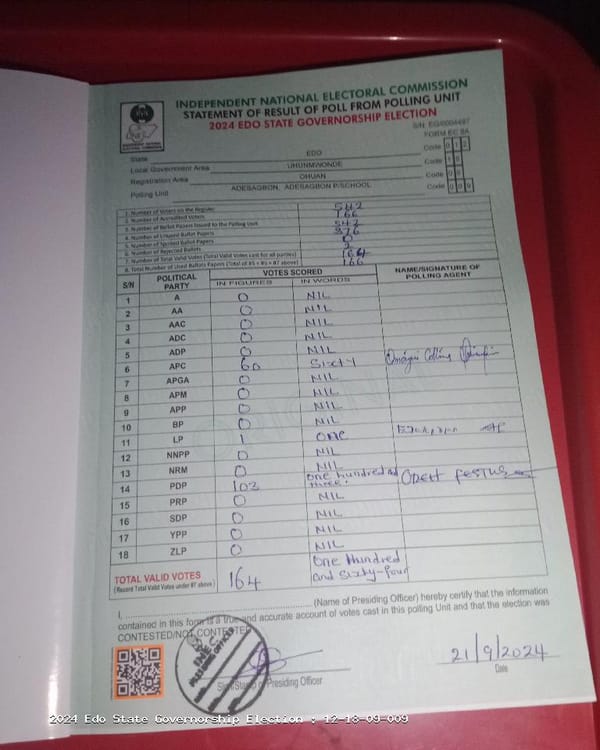 INDEPENDENT NATIONAL ELECTORAL COMMISSION
STATEMENT OF RESULT OF POLL FROM POLLING UNIT
2024 EDO STATE GOVERNORSHIP ELECTION
FORM EC 8A
State EDO Code 0 1 2
Local Government Area UHUNMWONDE Code 1 8
Registration Area OHUAN Code 0 9
Polling Unit ADESAGBON, ADESAGBON P/SCHOOL Code 0 0 9
1. Number of Voters on the Register 542
2. Number of Accredited Voters 166
3. Number of Ballot Papers Issued to the Polling Unit 542
4. Number of Unused Ballot Papers 376
5. Number of Spoiled Ballot Papers 0
6. Number of Rejected Ballots 2
7. Number of Total Valid Votes (Total Valid Votes cast for all parties) 164
8. Total Number of Used Ballots Papers (Total of #5 + #6 + #7 above) 166
S/N POLITICAL PARTY VOTES SCORED NAME/SIGNATURE OF POLLING AGENT
IN FIGURES IN WORDS
1 A 0 NIL
2 AA 0 NIL
3 AAC 0 NIL
4 ADC 0 NIL
5 ADP 0 NIL
6 APC 60 Sixty
7 APGA 0 NIL
8 APM 0 NIL
9 APP 0 NIL
10 BP 0 NIL
11 LP 1 one
12 NNPP 0 NIL
13 NRM 0 NIL
14 PDP 103 one hundred and three. Festus
15 PRP 0 NIL
16 SDP 0 NIL
17 YPP 0 NIL
18 ZLP 0 NIL
TOTAL VALID VOTES 164 One Hundred and Sixty-four
(Record Total Valid Votes under #7 above)
I, (Name of Presiding Officer) hereby certify that the information
contained in this form is a true and accurate account of votes cast in this polling Unit and that the election was
CONTESTED/NOT CONTESTED
INEC
PRESIDING OFFICER
Sign/Stamp of Presiding Officer
21/9/2024
Date
2024 Edo State Governorship Election : 12-18-09-009